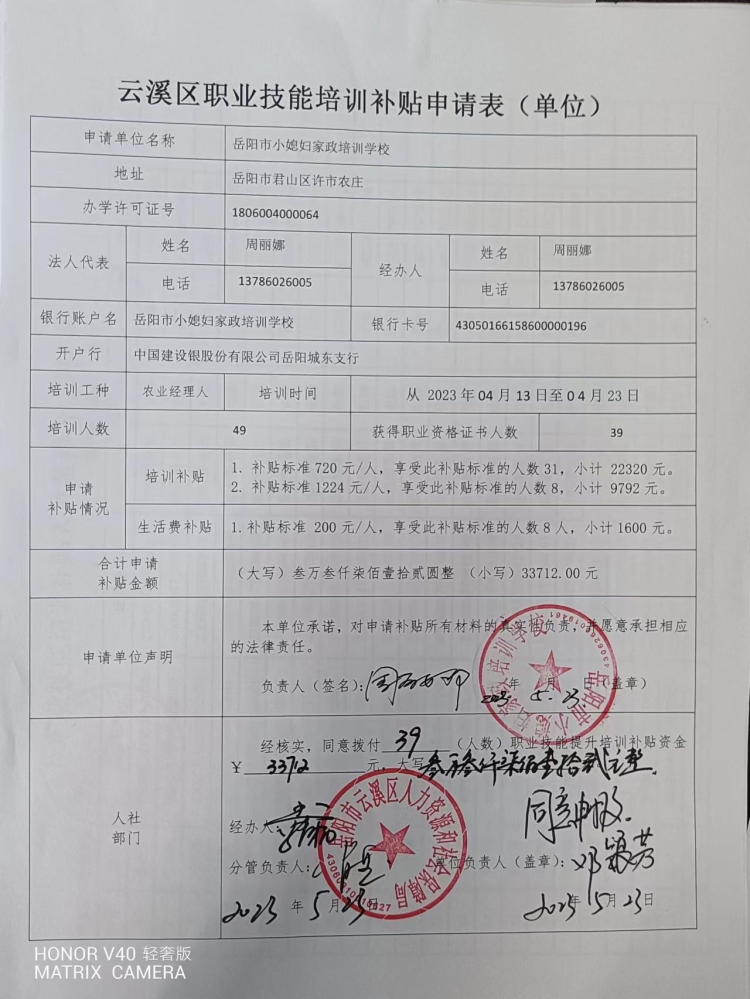 云溪区职业技能培训补贴申请表（单位）
申请单位名称 岳阳市小媳妇家政培训学校
地址 岳阳市君山区许市农庄
办学许可证号 1806004000064
法人代表 姓名 周丽娜 经办人 姓名 周丽娜
电话 13786026005 电话 13786026005
银行账户名 岳阳市小媳妇家政培训学校 银行卡号 43050166158600000196
开户行 中国建设银股份有限公司岳阳城东支行
培训工种 农业经理人 培训时间 从 2023 年 04 月 13 日至 0 4 月 23 日
培训人数 49 获得职业资格证书人数 39
申请
补贴情况
培训补贴
1. 补贴标准 720 元/人，享受此补贴标准的人数 31，小计 22320 元。
2. 补贴标准 1224 元/人，享受此补贴标准的人数 8，小计 9792 元。
生活费补贴 1. 补贴标准 200 元/人，享受此补贴标准的人数 8 人，小计 1600 元。
合计申请
补贴金额
（大写）叁万叁仟柒佰壹拾贰圆整 （小写）33712.00 元
申请单位声明
本单位承诺，对申请补贴所有材料的真实性负责，并愿意承担相应
的法律责任。
负责人（签名）：周丽娜 2023年 5月 23日（盖章）
人社
部门
经核实，同意拨付 39 （人数）职业技能提升培训补贴资金
￥ 33712 元，大写叁万叁仟柒佰壹拾贰元整.
同意申报.
经办人：
分管负责人： 单位负责人（盖章）：邓颖芳
2023 年 5 月 23 日 2023 年 5 月 23 日
岳阳市云溪区人力资源和社会保障局
HONOR V40 轻奢版
MATRIX CAMERA